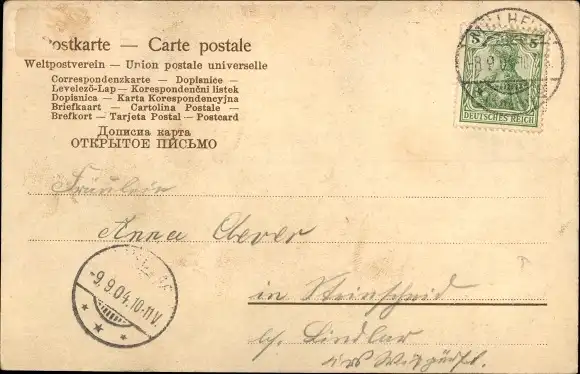 Postkarte — Carte postale
Weltpostverein — Union postale universelle
Correspondenzkarte — Dopisnice —
Levelező-Lap — Korespondenční listek
Dopisnica — Karta Korespondencyjna
Briefkaart — Cartolina Postale —
Brefkort — Tarjeta Postal — Postcard
Дописна карта
ОТКРЫТОЕ ПІСЬМО
5 5
DEUTSCHES REICH
Fräulein
Anna
-9.9.04.10-11V.
in Steinscheid
b/. Lindlar